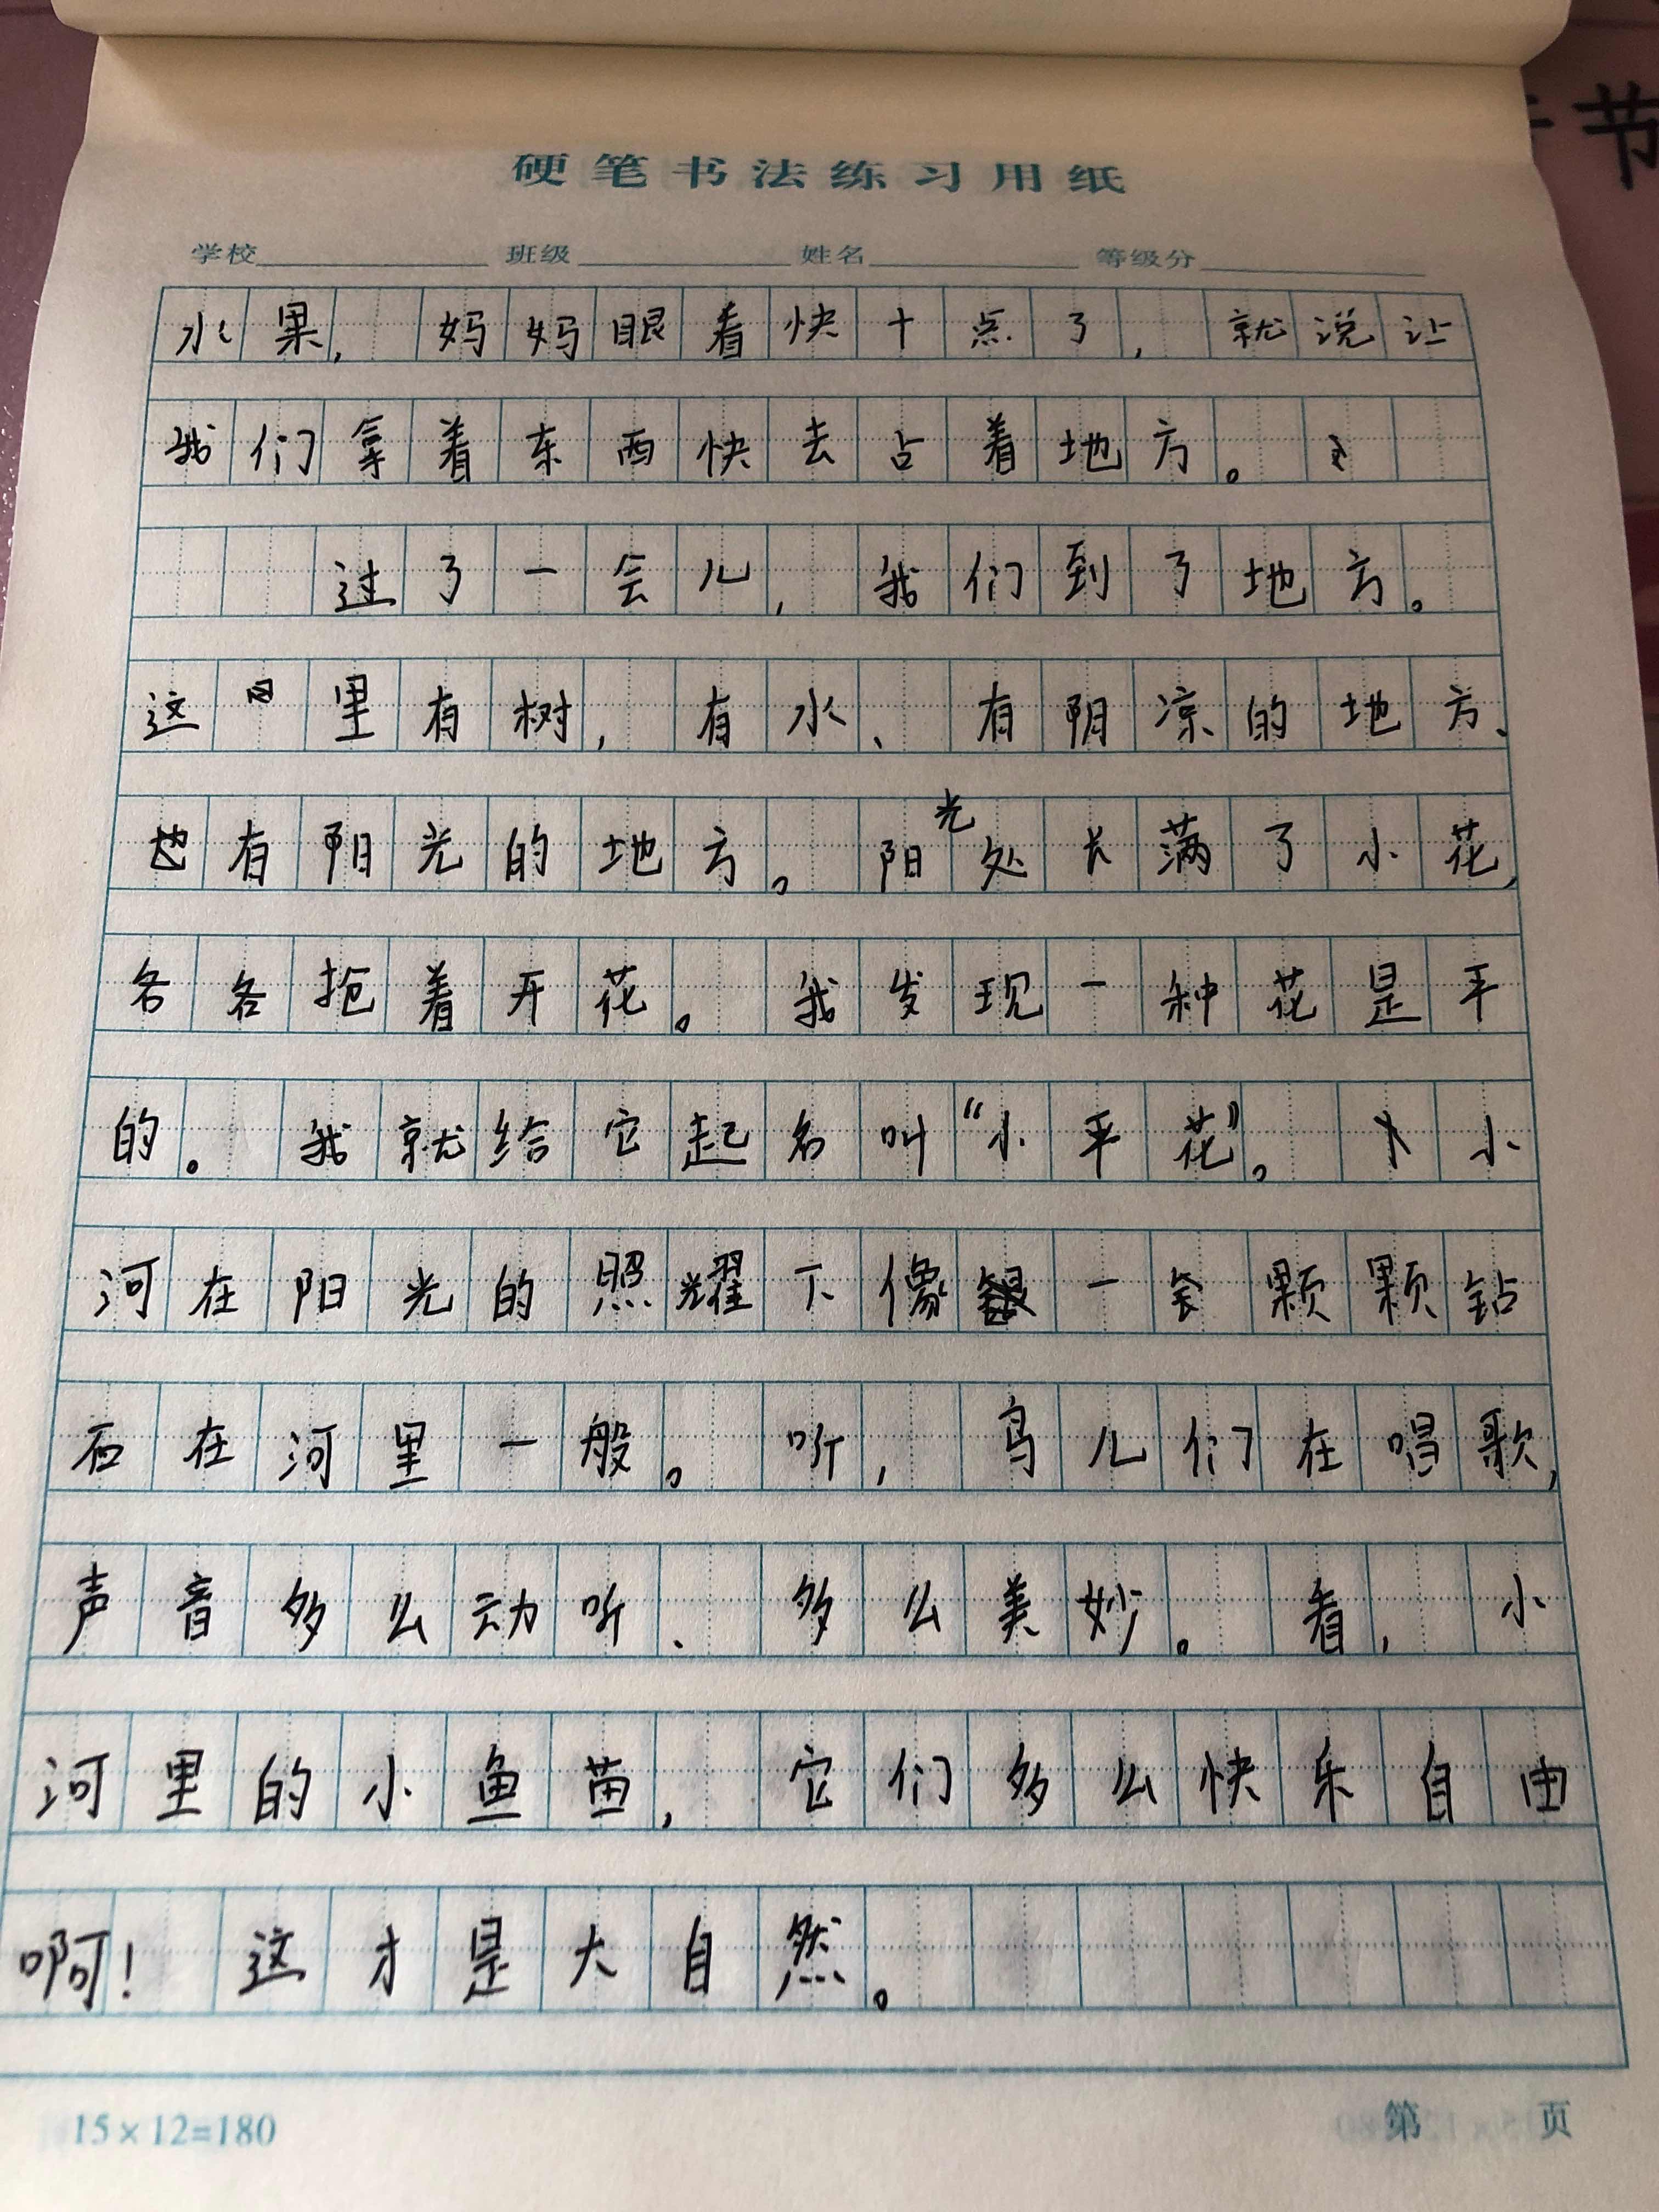 节
硬笔书法练习用纸
学校 班级 姓名 等级分
水果，妈妈眼看快十点了，就说让
我们拿着东西快去占着地方。
过了一会儿，我们到了地方。
这里有树，有水、有阴凉的地方、
也有阳光的地方。阳光处长满了小花，
各各抢着开花。我发现一种花是平
的。我就给它起名叫“小平花”。小
河在阳光的照耀下像一颗颗钻
石在河里一般。听，鸟儿们在唱歌，
声音多么动听、多么美妙。看，小
河里的小鱼苗，它们多么快乐自由
啊！这才是大自然。
15×12=180 第 页